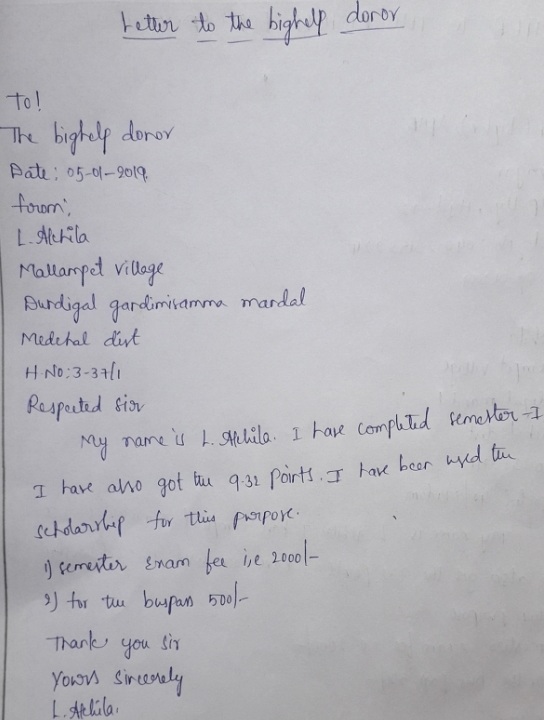 Letter to the bighelp donor
To!
The bighelp donor
Date: 05-01-2019.
from:
L. Akhila
Mallampet village
Dundigal gandimisamma mandal
Medchal dist
H-No: 3-37/1
Respected Sir
My name is L. Akhila. I have completed semester-I
I have also got the 9.32 points. I have been used the
scholarship for this purpose.
1) semester Exam fee i,e 2000/-
2) for the buspass 500/-
Thank you sir
Yours sincerely
L. Akhila.